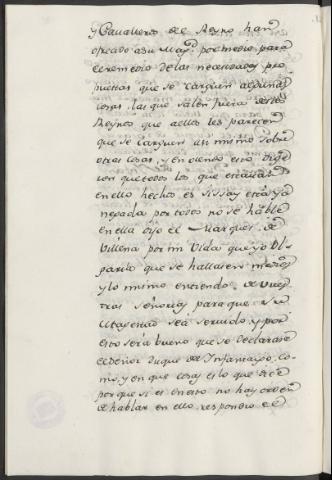 y Cavalleros del Reyno han
ofrecado a su Mag.d por medio para
el remedio de las necesidades pro
puestas que se carguen algunas
cosas las que salen fuera destos
Reynos que a ellos les parecen
que se carguen asi mismo sobre
otras cosas, y en oiendo esto dige
ron que todos los que estavan
en ello hechos es Sisa y esta ya
negada por todos no se hable
en ella dijo el Marques de
Villena por mi Vida que yo
para lo que se hallasen medios
y lo mismo entiendo de vues
tras señorias para que Su
Magestad sea servido y por
esto será bueno que se declarase
el Señor Duque del Infantazgo, co
mo, y en que cosas es lo que dice
porque si es en esto no hay orden
de hablar en ello, respondio el